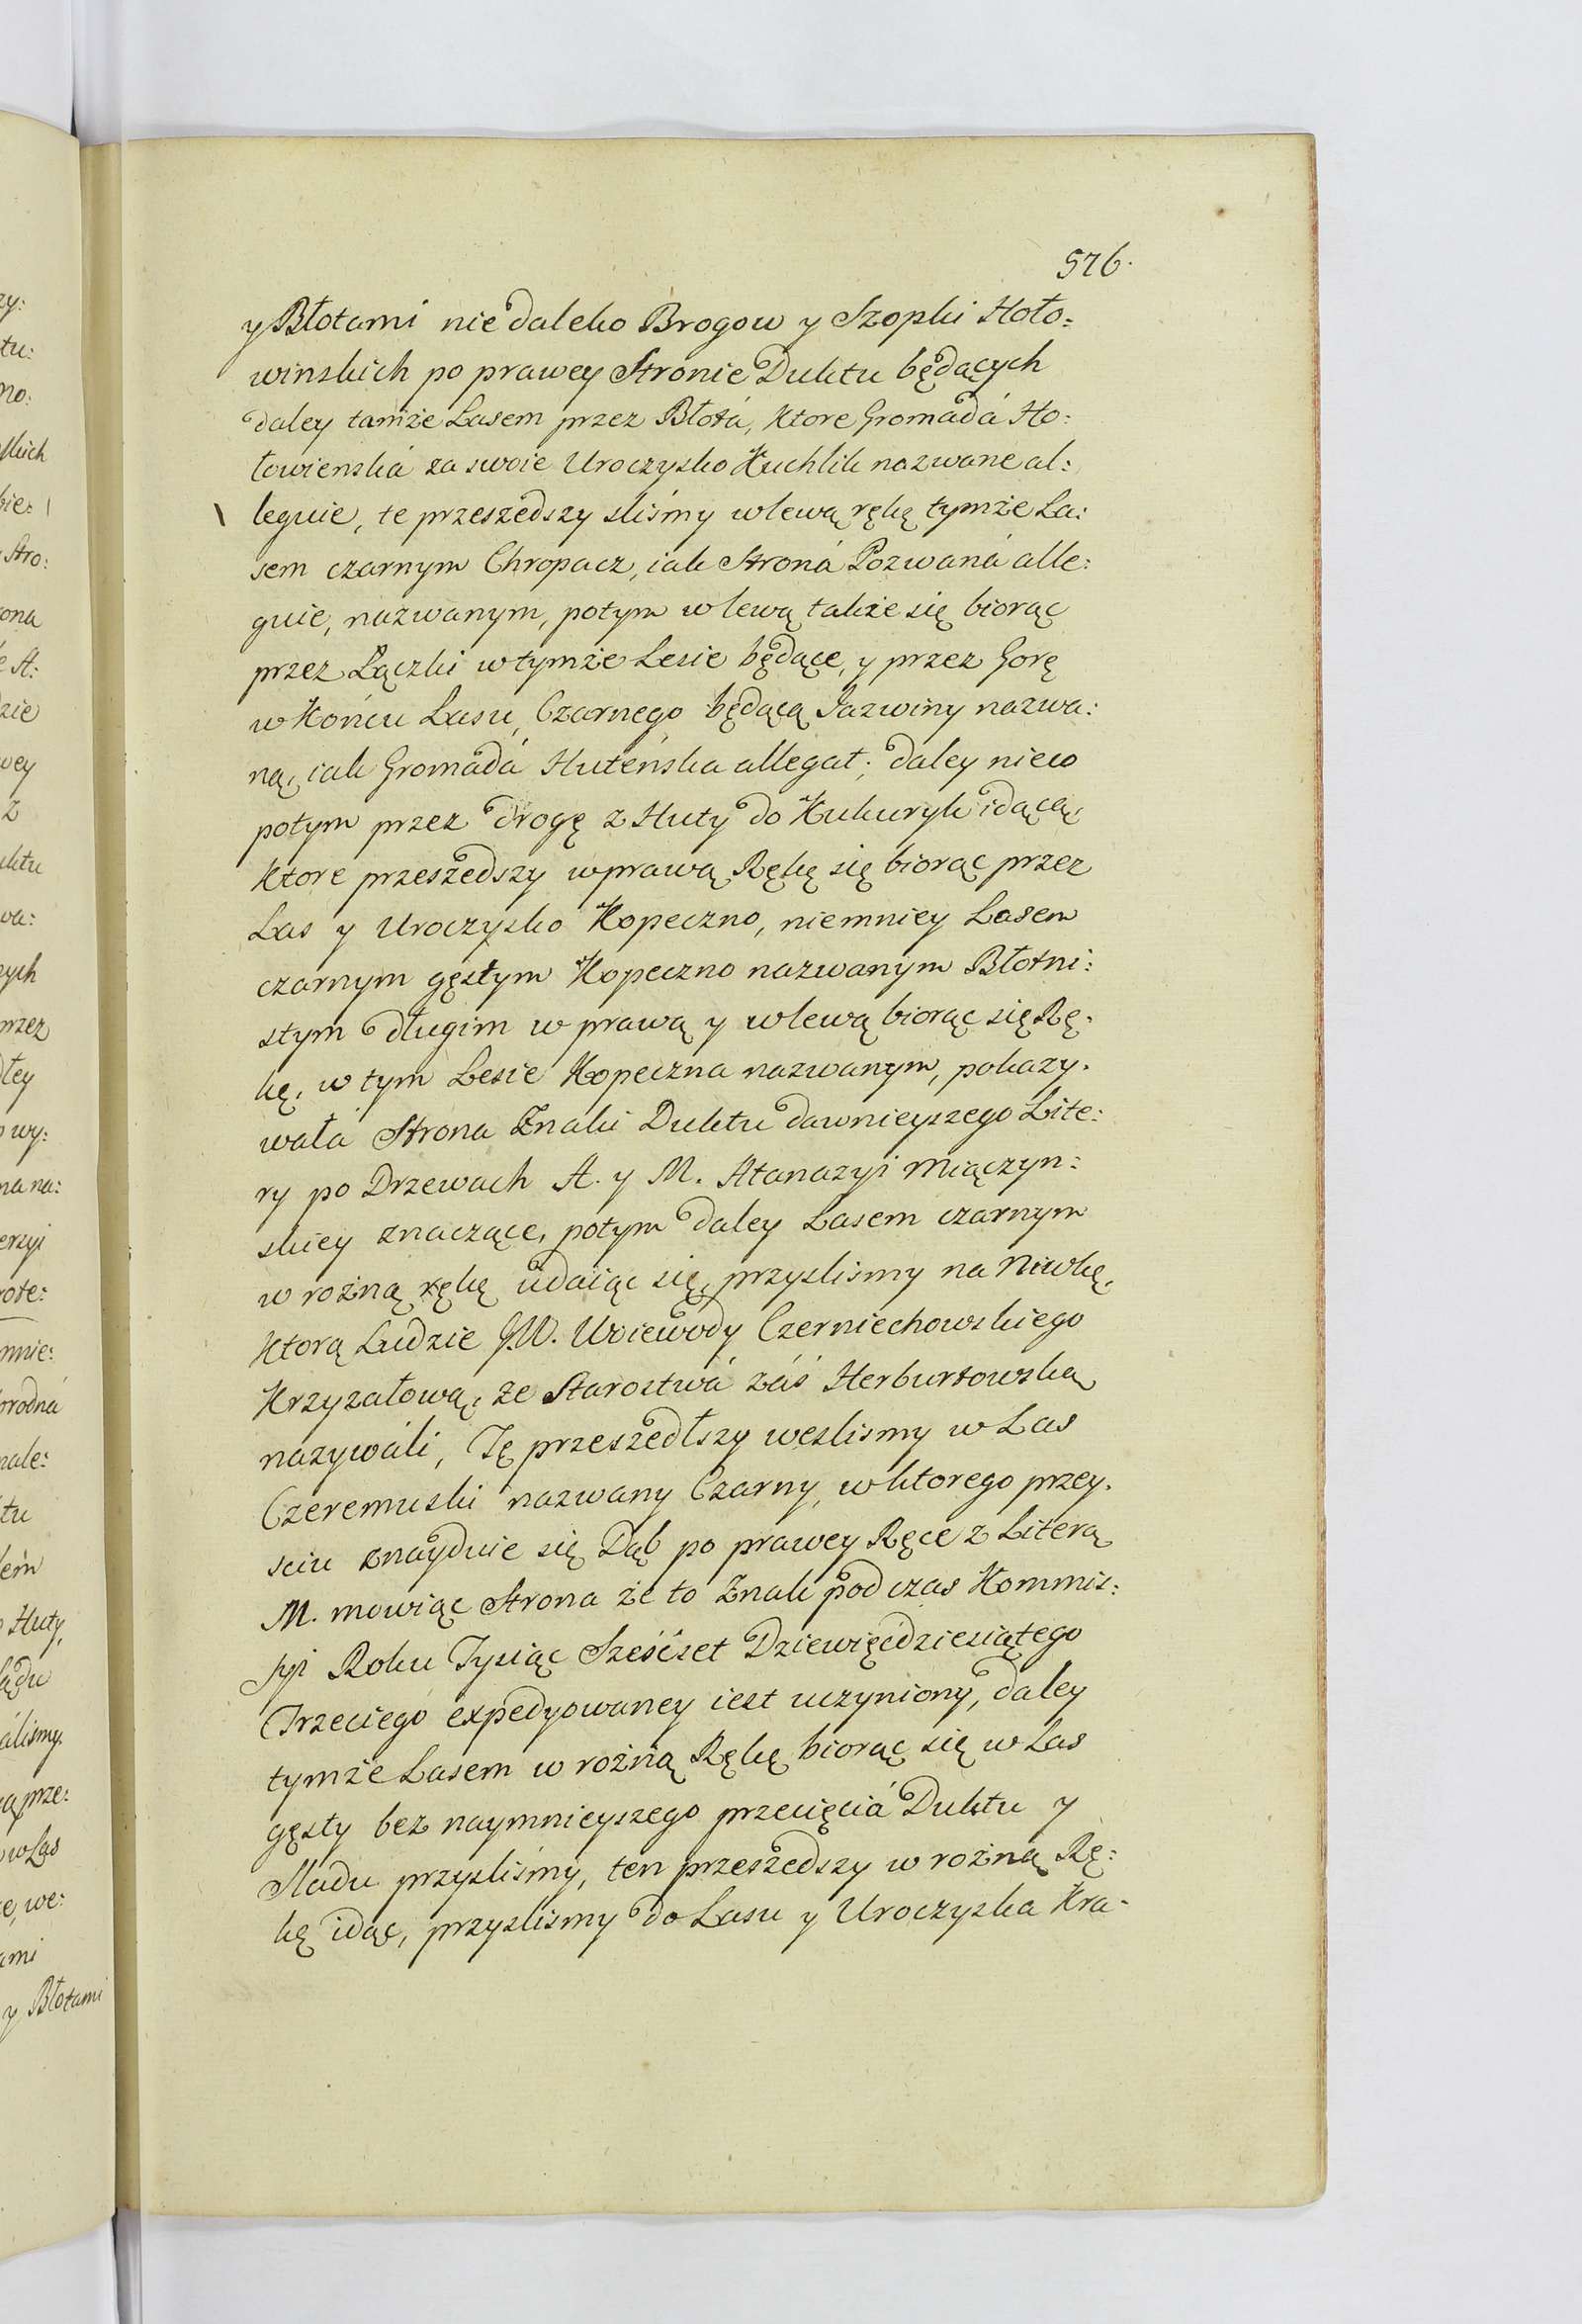 576.
y Błotami niedaleko Brogow y Szopki Hoło:
winskich po prawey Stronie Duktu będących
daley tamże Lasem przez Błotá, ktore Gromadá Ho:
łowienská za swoie Uroczysko Kuchlik nazwane al:
leguie, te przeszedszy sliśmy w lewą rękę tymże La:
sem czarnym Chropacz, iak Stroná Pozwaná alle:
guie, nazwanym, potym w lewą także się biorąc
przez Łączki w tymże Lesie będące, y przez Gorę
w Końcu Lasu, Czarnego będącą Jazwiny nazwa:
ną, iak Gromadá Huteńska allegat; daley nieco
potym przez drogę z Huty do Kukuryk idącą,
Ktore przeszedszy w prawą Rękę się biorąc przez
Las y Uroczysko Kopeczno, niemniey Lasem
czarnym gęstym Kopeczno nazwanym Błotni:
stym długim w prawą y w lewą biorąc się Rę:
kę, w tym Lesie Kopeczna nazwanym, pokazy:
wałá Strona Znaki Duktu dawnieyszego Lite:
ry po Drzewach A. y M. Atanazyi Miączyn:
skiey znaczące, potym daley Lasem czarnym
w rożną rękę udaiąc się, przyslismy na Niwkę,
Ktorą Ludzie J.W. Woiewody Czerniechowskiego
Krzyzałową, ze Starostwá záś Herburtowską
nazywáli, Tę przeszedłszy weslismy w Las
Czeremuski nazwany Czarny, w ktorego przey:
sciu znayduie się Dąb po prawey Ręce z Literą
M. mowiąc Strona że to Znak podczas Kommis:
syi Roku Tysiąc Sześćset Dziewięćdziesiątego
Trzeciego expedyowaney iest uczyniony, daley
tymże Lasem w rożną Rękę biorąc się w Las
gęsty bez naymnieyszego przecięciá Duktu y
Sladu przysliśmy, ten przeszedszy w rożną Rę:
kę idąc, przyslismy do Lasu y Uroczyska Kra-
zy:
tu:
no:
Stro:
ona
zie
wey
z
uktu
wa:
zych
przez
wy:
na na:
erzyi
rote:
mnie:
orodná
nale:
tu
Huty,
áliśmy.
prze:
w Las
we:
ami
y Błotami